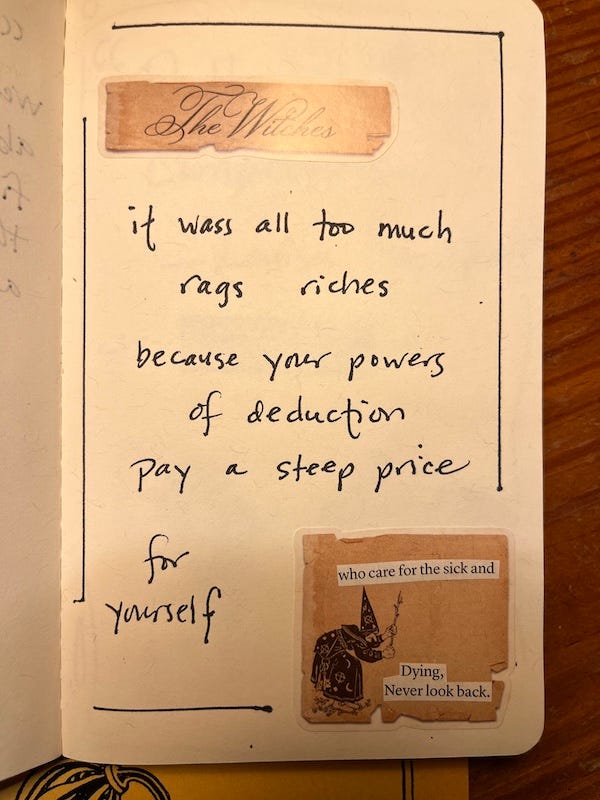 The Witches
it wass all too much
rags riches
because your powers
of deduction
pay a steep price
for
yourself
who care for the sick and
Dying,
Never look back.